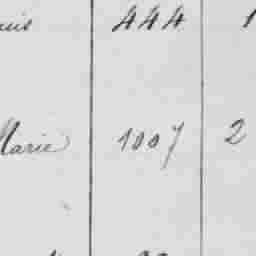 444 1
Marie 1007 2